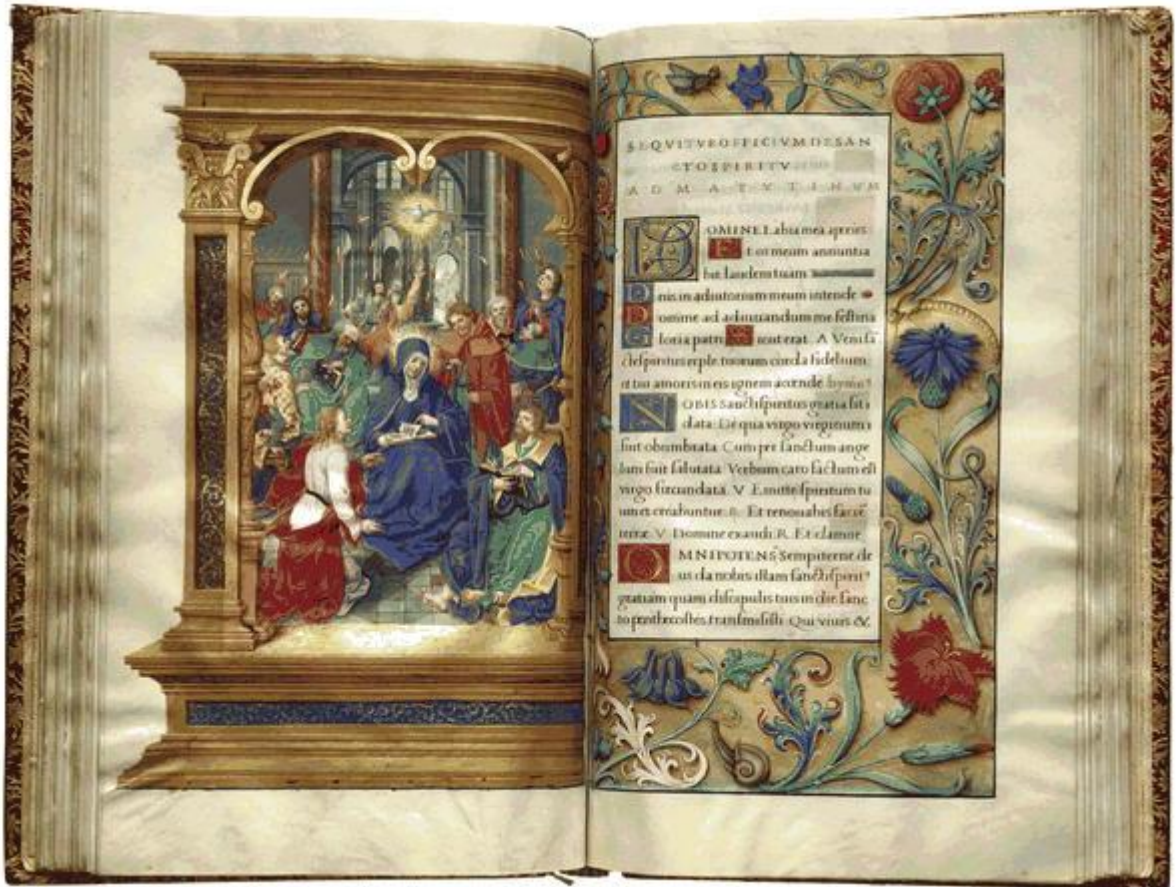 SEQVITVR OFFICIVM DE SAN
CTO SPIRITV
AD MATVTINVM
DOMINE Labia mea aperies
Et os meum annuntia
bit laudem tuam
Dñis in adiutorium meum intende
Domine ad adiuuandum me festina
Gloria patri Sicut erat. A Veni sã
cte spiritus reple tuorum corda fidelium:
et tui amoris in eis ignem accende hymnꝰ
NOBIS Sancti spiritus gratia sit
data: De qua virgo virginum
fuit obumbrata Cum per sanctum ange
lum fuit salutata: Verbum caro factum est
virgo fecundata. V Emitte spiritum tu
um et creabuntur. R. Et renouabis faciē
terræ V Domine exaudi R. Et clamor
OMNIPOTENS Sempiterne de
us da nobis illam sancti spiritꝰ
gratiam quam discipulis tuis in die sanc
to penthecostes transmisisti Qui viuis &